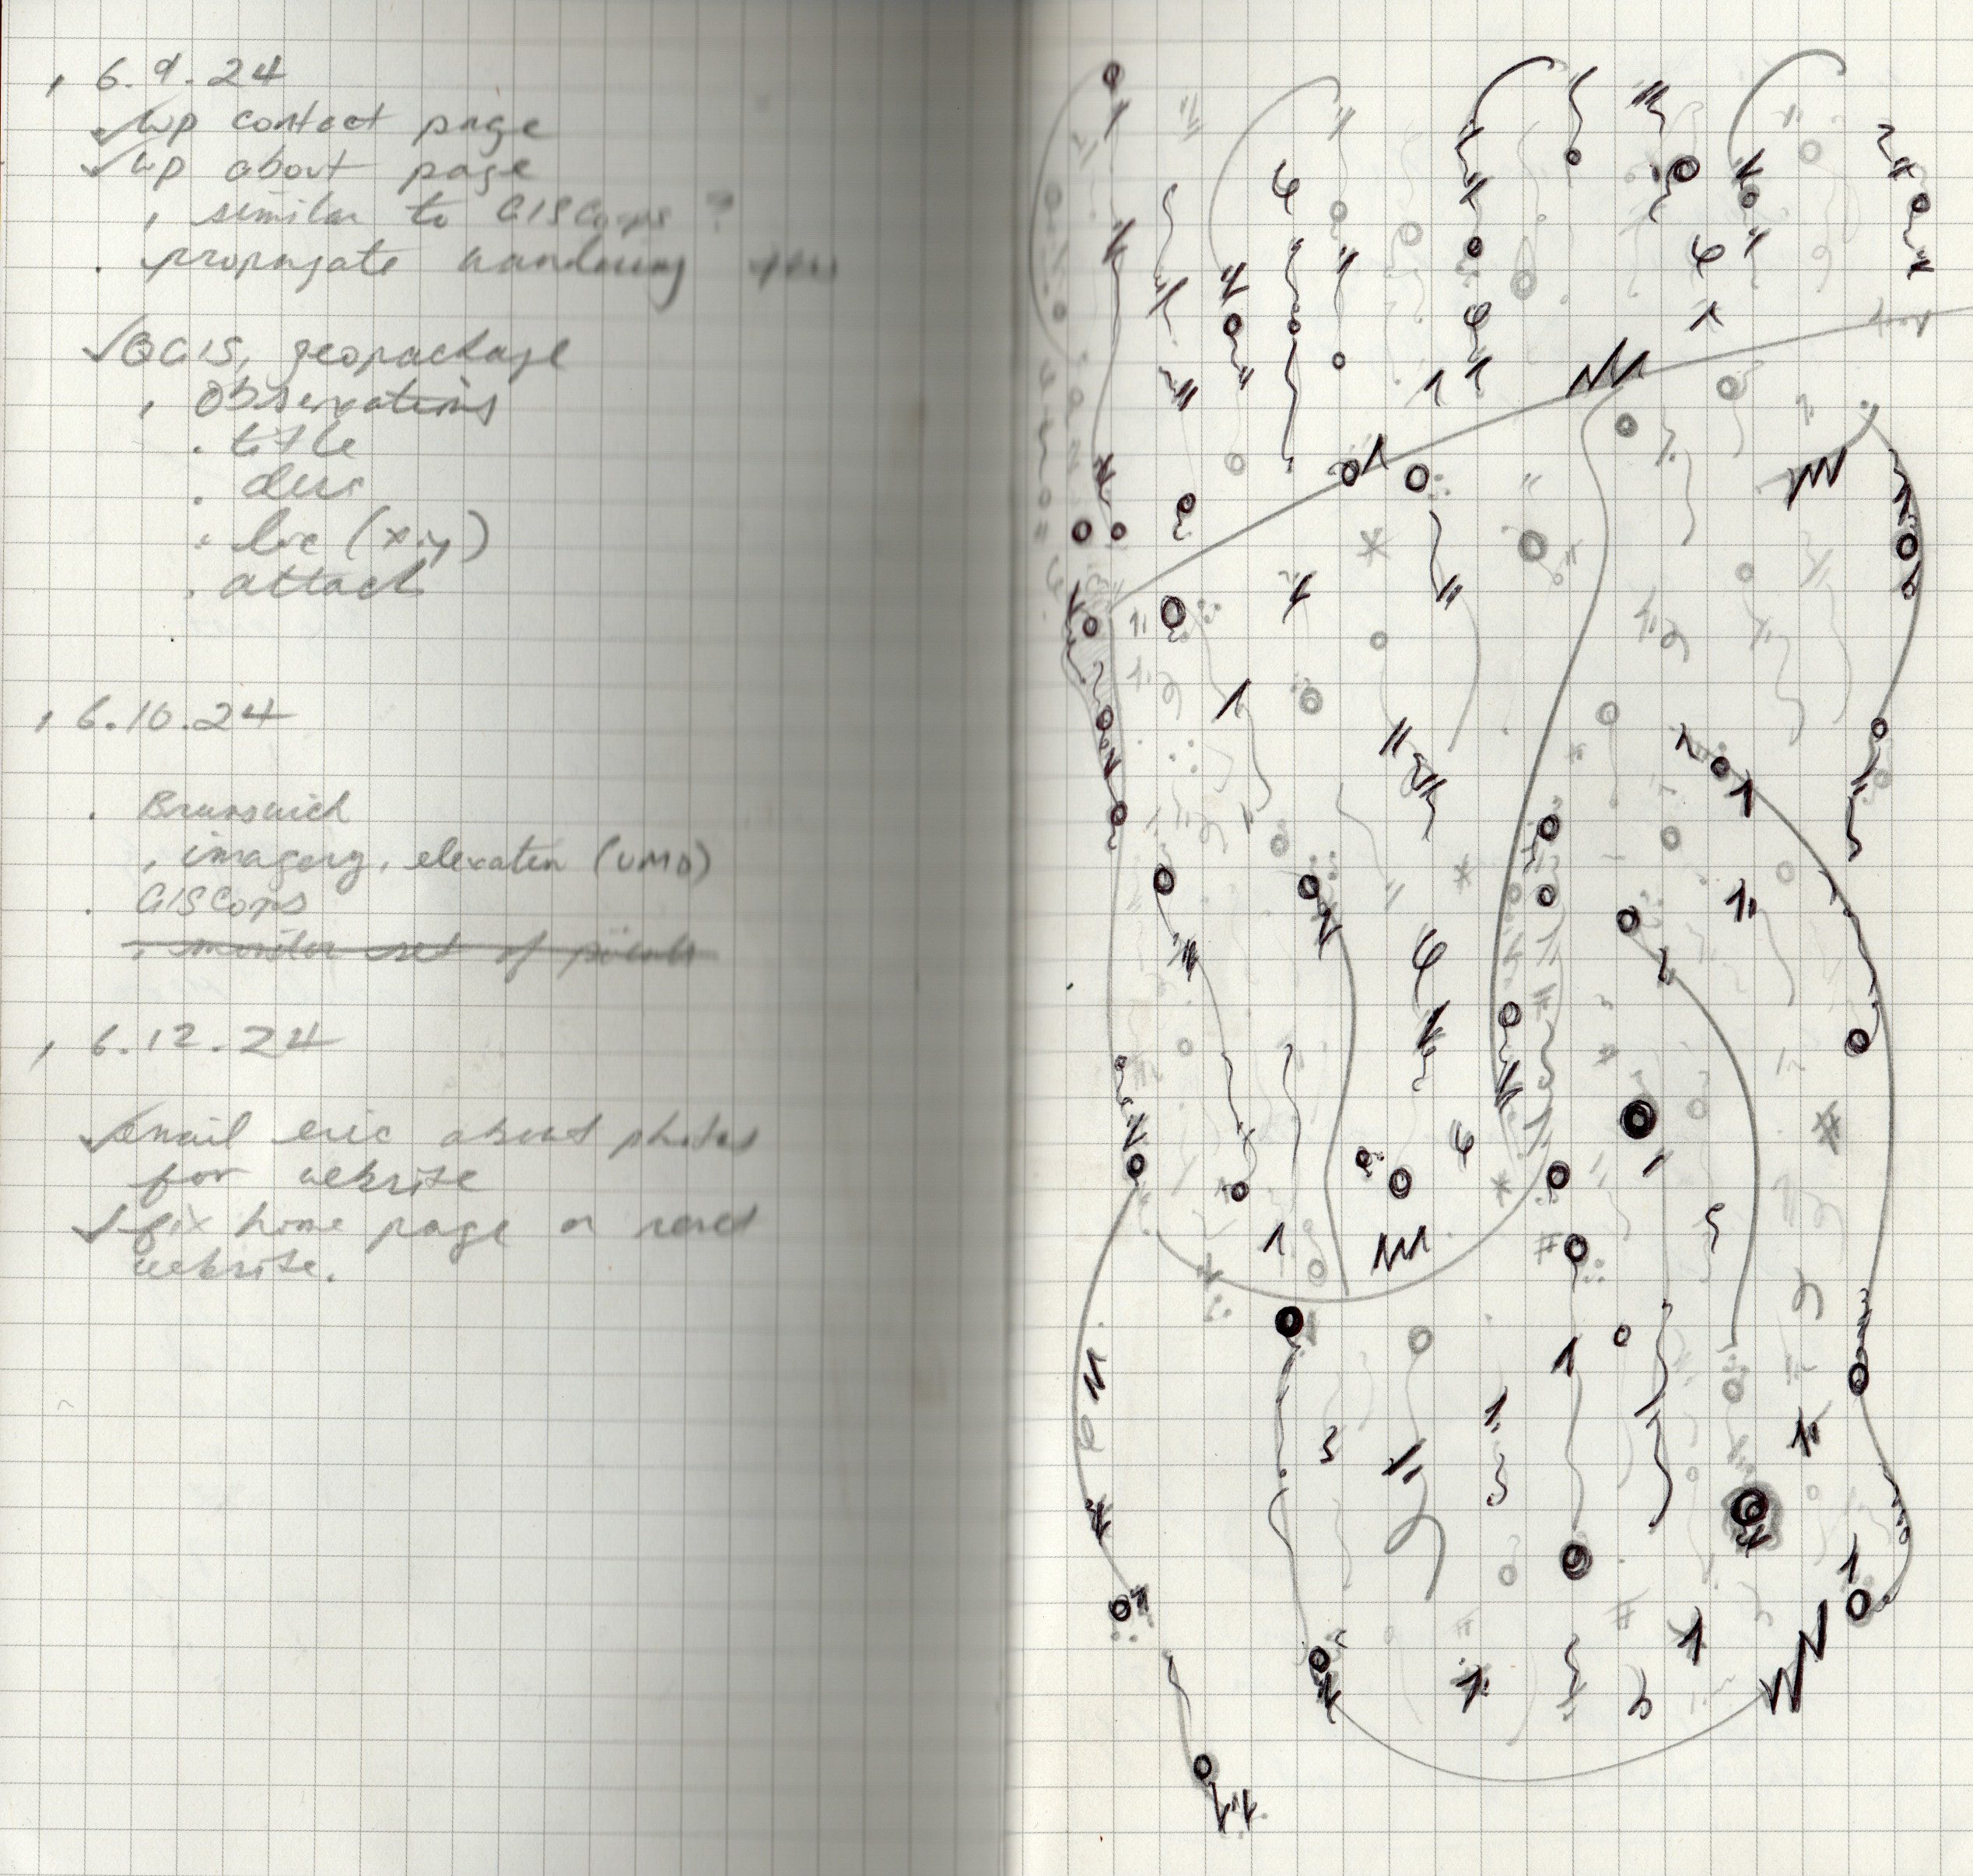 6.9.24
✓ wp contact page
✓ wp about page
, similar to GISCorps ?
. propagate wandering
✓ QGIS, geopackage
, observations
. title
. desc
. loc (x,y)
. attach
, 6.10.24
. Brunswick
, imagery, elevation (UMD)
. GISCorps
. monitor set of points
, 6.12.24
✓ email eric about photos
for website
✓ fix home page or reset
website.